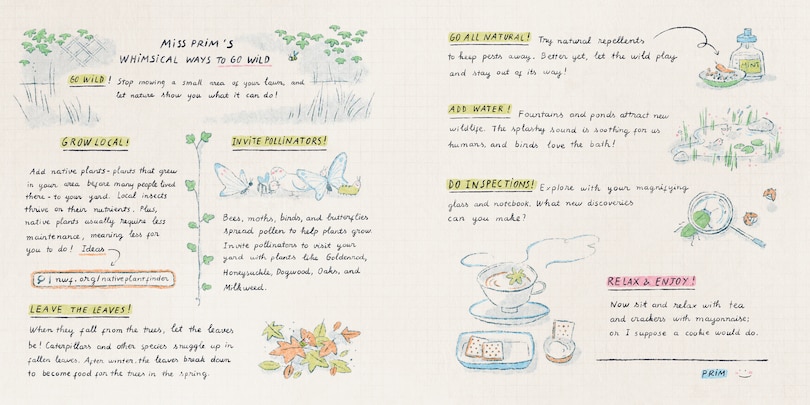 MISS PRIM'S
WHIMSICAL WAYS TO GO WILD
GO WILD! Stop mowing a small area of your lawn, and
let nature show you what it can do!
GROW LOCAL!
Add native plants - plants that grew
in your area before many people lived
there - to your yard. Local insects
thrive on their nutrients. Plus,
native plants usually require less
maintenance, meaning less for
you to do! Ideas
nwf.org/nativeplantfinder
INVITE POLLINATORS!
Bees, moths, birds, and butterflies
spread pollen to help plants grow.
Invite pollinators to visit your
yard with plants like Goldenrod,
Honeysuckle, Dogwood, Oaks, and
Milkweed.
LEAVE THE LEAVES!
When they fall from the trees, let the leaves
be! Caterpillars and other species snuggle up in
fallen leaves. After winter, the leaves break down
to become food for the trees in the spring.
GO ALL NATURAL! Try natural repellents
to keep pests away. Better yet, let the wild play
and stay out of its way!
MINT
ADD WATER! Fountains and ponds attract new
wildlife. The splashy sound is soothing for us
humans, and birds love the bath!
DO INSPECTIONS! Explore with your magnifying
glass and notebook. What new discoveries
can you make?
RELAX & ENJOY!
Now sit and relax with tea
and crackers with mayonnaise;
or I suppose a cookie would do.
PRIM